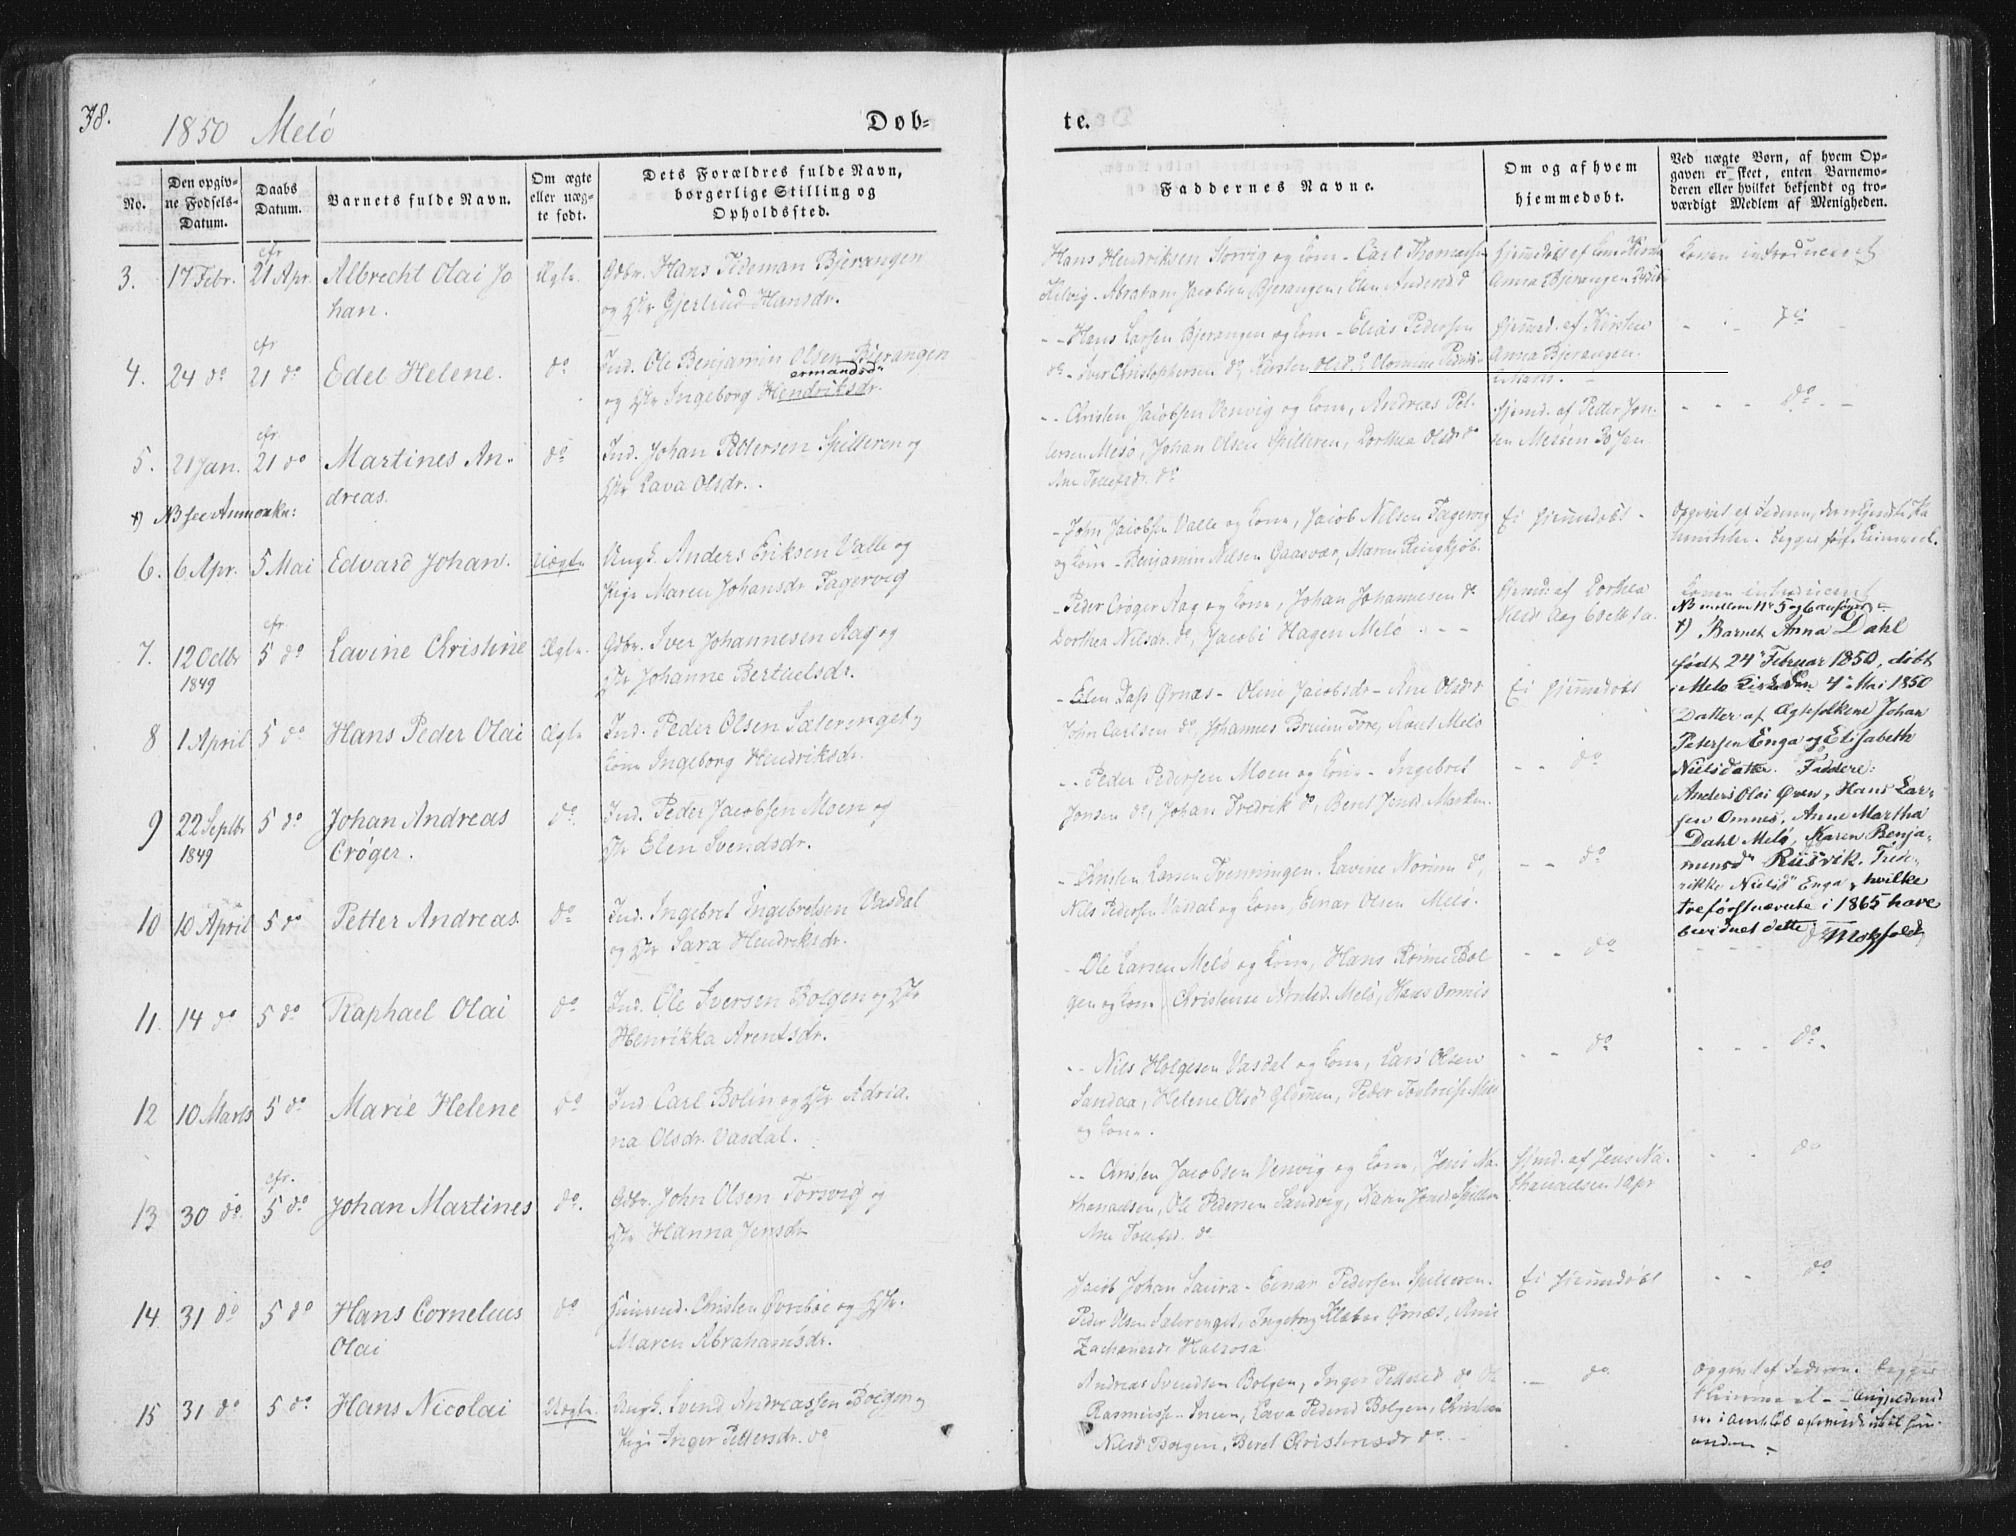 38.
1850 Melö
Dob-
te.
No.
Den opgiv-
ne Fødsels-
Datum.
Daabs
Datum.
Barnets fulde Navn.
Om ægte
eller næg-
te født.
Dets Forældres fulde Navn,
borgerlige Stilling og
Opholdssted.
Faddernes Navne.
Om og af hvem
hjemmedøbt.
Ved nægte Børn, af hvem Op-
gaven er skeet, enten Barnemo-
deren eller hvilket bekjendt og tro-
værdigt Medlem af Menigheden.
3. 17 Febr. efr 21 Apr. Albrecht Olai Jo
han.
Ægte.
Gdbr. Hans Pedeman Bjerangen
og Gjertrud Hansdr.
Hans Hendriksen Storvig og Kone - Carl Thomasen
Kilvig. Abraham Jacobsen Bjerangen, Elen Andersd
Anna Bjerangen
Konen introduceret
4. 24 do efr 21 do Edel Helene. do
Ind. Ole Benjamin Olsen Bjerangen
ermandsdr
og Ingeborg Hendriksdr.
- - Hans Larsen Bjerangen og Kone - Elias Pedersen
do - Iver Christophersen do, Kirsten Olsd.
hjemmd. af Kirsten
Anna Bjerangen.
do
5. 21 Jan. efr. 21 do Martines An-
dreas.
do
Ind. Johan Petersen Spilleren og
Lava Olsdr.
- - Christen Jacobsen Venvig og Kone, Andreas Pet-
tersen Melö, Johan Olsen Spilleren, Dorthea Olsdr do
Ane Tollefsdr. do
hjemd. af Petter Jon-
sen Messen 30 Jan
do
†) NB see Anmærkn:
6. 6 Apr. 5 Mai Edvard Johan. Uægte
Ungk. Anders Eriksen Valle og
Pige Maren Johansdr Fagervig
- John Jacobsen Valle og Kone, Jacob Nilsen Fagervig
og Kone - Benjamin Nilsen Gaasvær, Maren Ringkjøb.
Ei hjemmedøbt -
Opgivet af Faderen,
7. 12 Octbr 1849 efr 5 do Lavine Christine Ægte.
Gdbr. Iver Johannesen Aag og
Johanne Bertuelsdr.
- Peder Crøger Aag og Kone, Johan Johannesen do
Dorthea Nilsdr. do, Jacobi Hagen Melö
hjemd. af Dorthea
Nilsd Aag
Konen introduceret
NB mellem No 5 og 6 anføres
†) Barnet Anna Dahl
født 24de Februar 1850, døbt
i Melø Kirke den 4de Mai 1850
Datter af Ægtefolkene Johan
Petersen Enga og Elisabeth
Nielsdatter. Faddere:
Anders Olai Øren, Hans Lar-
sen Omnes, Anne Martha
Dahl Melö, Karen Benja-
minsd Riisvik. Frede-
rikke Nielsd Enga, hvilke
tre førstnævnte i 1865 have
bevidnet dette
8 1 April 5 do Hans Peder Olai Ægte
Ind. Peder Olsen Sæterenget,
Kone Ingeborg Hendriksdr.
- Elen Dass Ørnæs - Oline Jacobsdr - Ane Olsdr
John Carlsen do, Johannes Bruun Fore, Knut Melö
Ei hjemmedøbt
9 22 Septbr 1849 5 do Johan Andreas
Crøger.
do.
Ind. Peder Jacobsen Moen og
Elen Svendsdr.
- - Peder Pedersen Moen og Kone - Ingebret
Jonsen do, Johan Fredrik do, Beret Jensd
- - do
10 10 April 5 do Petter Andreas. do
Ind. Ingebret Ingebretsen Vasdal
og Sara Hendriksdr.
- Christen Larsen Tvenningen. Lavine Norum do,
Nils Pedersen Vasdal og Kone, Eenar Olsen Melö.
- - do
11. 14 do 5 do Raphael Olai do
Ind. Ole Iversen Bolgen og
Henrikka Arentsdr.
- Ole Larsen Melö og Kone, Hans Rønne Bol
gen og Kone Christense Arntsd. Melö, Hans Omnes
- - do
12 10 Marts 5 do Marie Helene do
Ind Carl Bolin og Adria.
na Olsdr. Vasdal.
- - Nils Holgesen Vasdal og Kone, Lars Olsen
Sandaa, Helene Olsd Glommen, Peder
og Kone.
- - do
- - - do -
13 30 do. efr. 5 do Johan Martines do.
Gdbr. John Olsen Torsvig og
Hanna Jensdr
- - Christen Jacobsen Venvig og Kone, Jens Na-
thanaelsen, Ole Pedersen Sandvig, Karen Jonsd Spilleren
Ane Tollefsd. do
hjemd. af Jens Na-
thanaelsen 1 Apr
do
14. 31 do 5 do Hans Cornelius
Olai
do
Christen Øvrebøe og
Maren Abrahamsdr.
Jacob Johan Saura - Eenar Pedersen Spilleren.
Peder Olsen Sæterenget, Ingeborg Klæboe Ørnæs, Ane
Zachariasd. Halsosa
Ei hjemmedøbt
do
15 31 do 5 do Hans Nicolai Uægte.
Ungk. Svend Andreassen Bolgen og
Pige Inger Pettersdr. do
Andreas Svendsen Bolgen, Inger Pettersd do
Rasmussen Lava Pedersd Bolgen, Christian
Nilsd Bolgen, Beret Christensdr do. -
- - do
Opgivet af Faderen. Begges